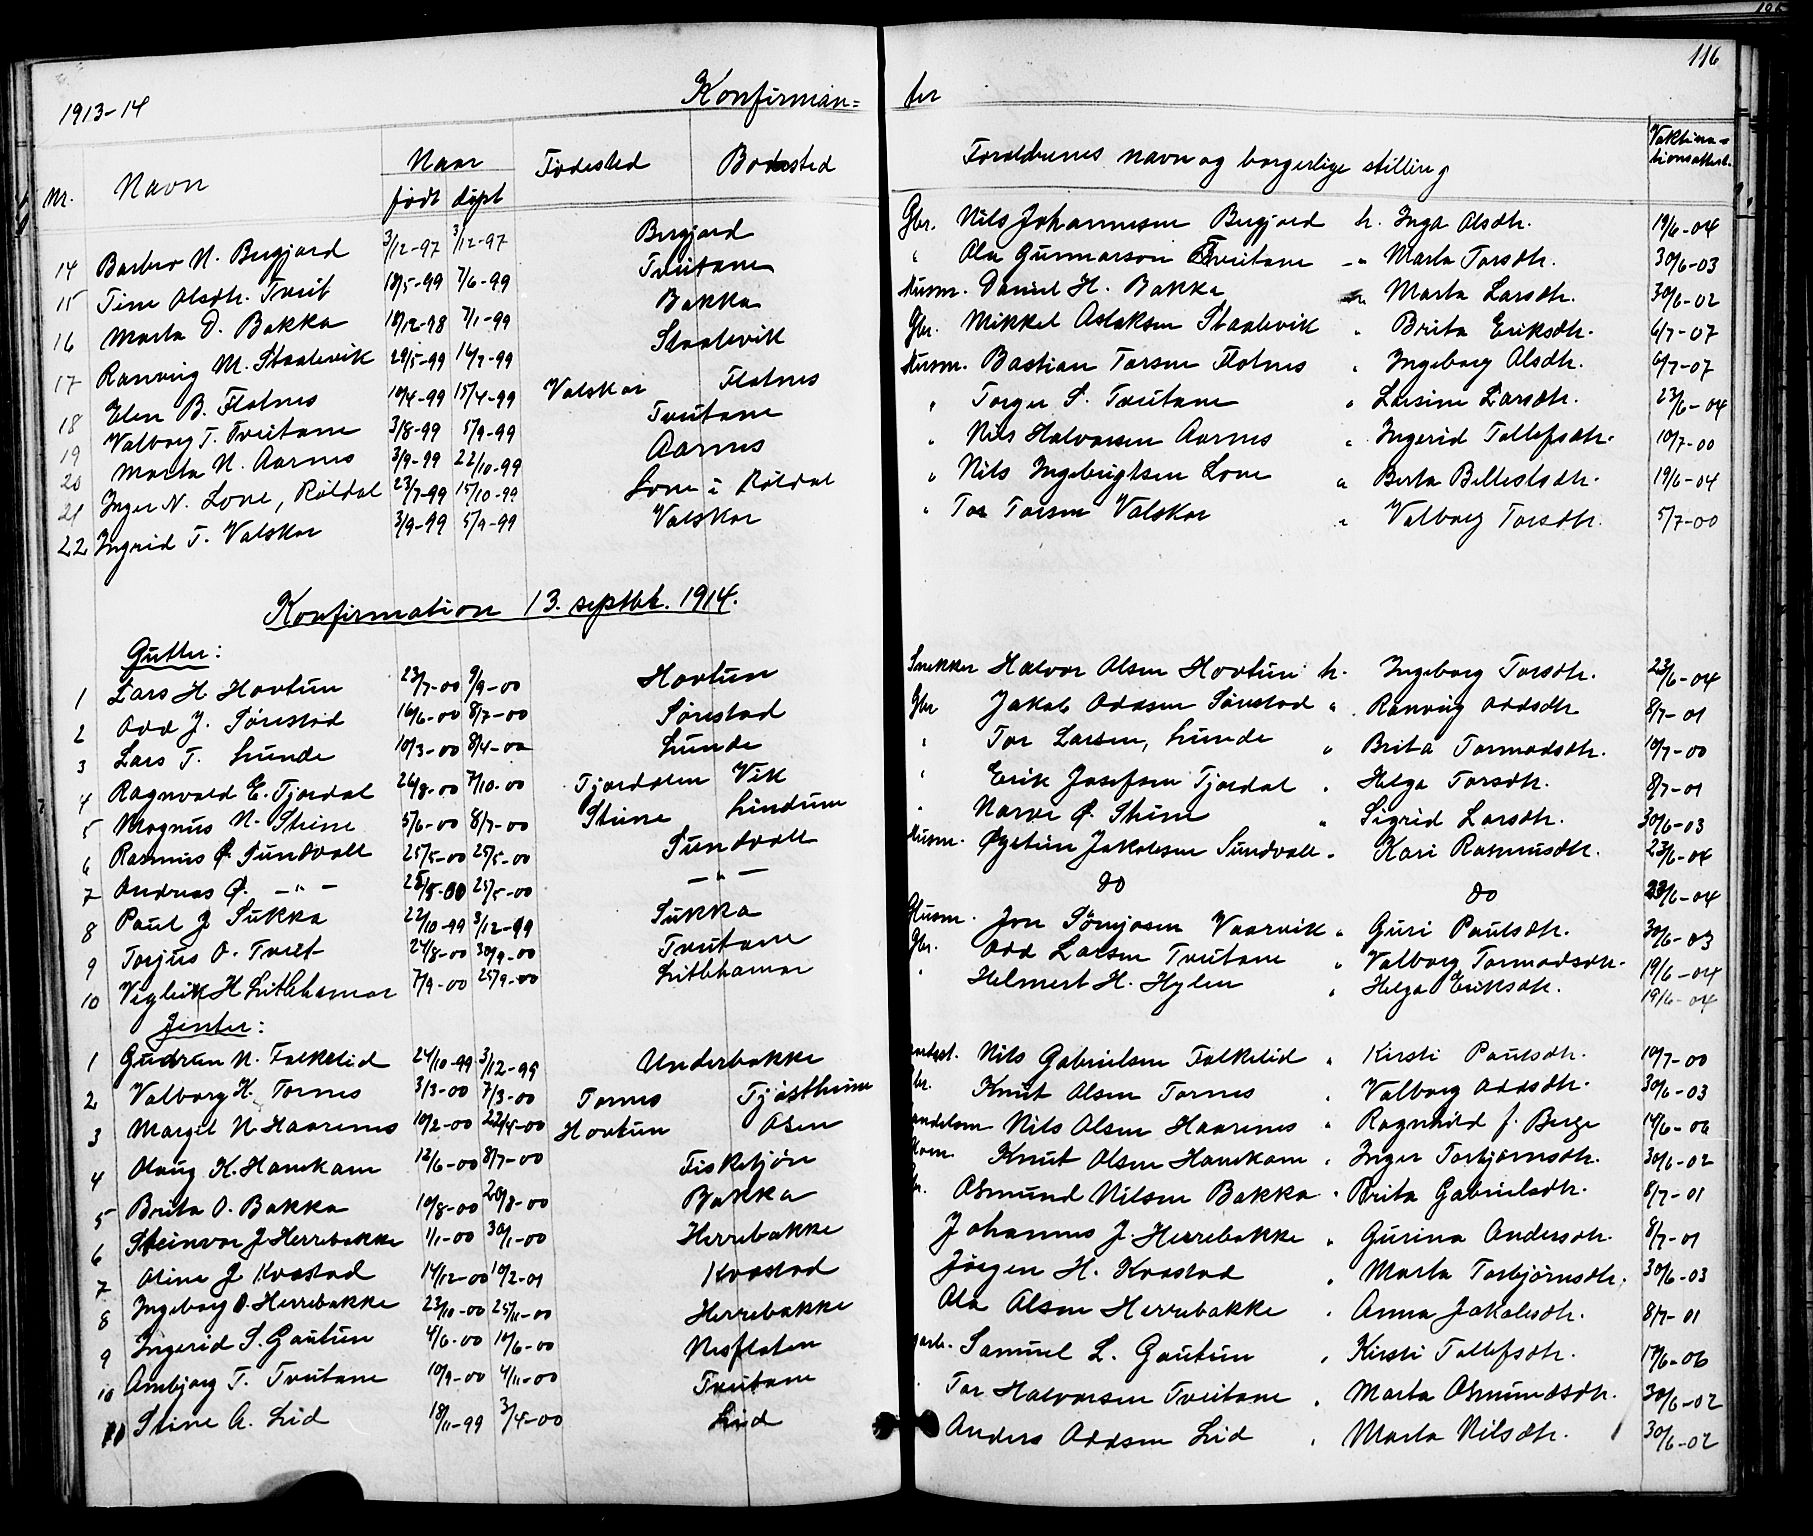 116
1913-14 Konfirman= ter
Nr. Navn Naar født døpt Fødested Bosted Forældrenes navn og borgerlige stilling Vaktina=tionsattest.
14 Barbro N. Bergjord 3/12-97 3/12-97 Bergjord Gbr. Nils Johannesen Bergjord h. Inga Olsdtr. 19/6-04
15 Tine Olsdtr. Tveit 18/5-99 7/6-99 Tveitane " Ola Gunnarson Tveitane " Marta Torsdtr. 30/6-03
16 Marta D. Bakka 18/12-98 7/1-99 Bakka Husm. Daniel H. Bakka h. Marta Larsdtr. 30/6-02
17 Ranveig M. Staalevik 29/5-99 16/7-99 Staalevik Gbr. Mikkel Aslaksen Staalevik " Brita Eriksdtr. 6/7-07
18 Elen B. Flotnes 10/4-99 15/4-99 Valskor Flotnes Husm. Bastian Torsen Flotnes " Ingeborg Olsdtr. 6/7-07
19 Valborg T. Tveitane 3/8-99 5/9-99 Tveitane " Torger S. Tveitane " Larsine Larsdtr. 23/6-04
20 Marta N. Aarnes 3/9-99 22/10-99 Aarnes " Nils Halvorsen Aarnes " Ingerid Tollefsdtr. 10/7-00
21 Inger N. Lone, Røldal 23/7-99 15/10-99 Lone i Røldal " Nils Ingebrigtsen Lone " Berta Bellestsdtr. 19/6-04
22 Ingrid T. Valskor 3/9-99 5/9-99 Valskor " Tor Torsen Valskor " Valborg Torsdtr. 5/7-00
Konfirmation 13. septbr. 1914.
Gutter:
1 Lars H. Hovtun 23/7-00 9/9-00 Hovtun Snekker Halvor Olsen Hovtun h. Ingeborg Torsdtr. 23/6-04
2 Odd J. Sørestad 16/6-00 8/7-00 Sørestad Gbr Jakob Oddsen Sørestad " Ranveig Oddsdtr 8/7-01
3 Lars T. Lunde 10/3-00 8/4-00 Lunde " Tor Larsen, Lunde " Brita Tormodsdtr. 10/7-00
4 Ragnvald E. Fjordal 26/8-00 7/10-00 Fjordalen Vik " Erik Josefsen Fjordal " Helga Torsdtr. 8/7-01
5 Magnus N. Steine 5/6-00 8/7-00 Steine Lindum " Narve Ø. Steine " Sigrid Larsdtr. 30/6-03
6 Rasmus Ø. Sundvall 25/5-00 25/5-00 Sundvall Husm. Øystein Jakobsen Sundvall " Kari Rasmusdtr. 23/6-04
7 Andreas Ø. — " — 25/5-00 25/5-00 — " — do do 23/6-04
8 Paul J Sukka 22/10-99 3/12-99 Sukka Husm. Jon Sønjosen Vaarvik " Guri Paulsdtr. 30/6-03
9 Torjus O. Tveit 24/8-00 30/9-00 Tveitane Gbr. Odd Larsen Tveitane " Valborg Tormodsdtr. 19/6-04
10 Vigleik H Litlehamar 7/9-00 25/9-00 Litlehamar " Helmert H. Hylen " Helga Eriksdtr. 19/6-04
Jenter:
1 Gudrun N. Falkelid 24/10-99 3/12-99 Underbakke Nils Gabrielsen Falkelid " Kirsti Paulsdtr. 10/7-00
2 Valborg K. Tornes 3/3-00 7/3-00 Tornes Tjøstheim br. Knut Olsen Tornes " Valborg Oddsdtr. 30/6-03
3 Margit N Haarenes 10/2-00 22/4-00 Hovtun Osen andelsm Nils Olsen Haarenes " Ragnhild J. Berge 14/6-06
4 Olaug K. Hanekam 12/6-00 8/7-00 Fisketjøn Knut Olsen Hanekam " Inger Torbjørnsdtr. 30/6-02
5 Brita O. Bakka 10/8-00 26/8-00 Bakka br. Osmund Nilsen Bakka " Brita Gabrielsdtr. 8/7-01
6 Steinvor J. Herrebakke 1/1-00 30/1-00 Herrebakke Johannes J. Herrebakke " Gurina Andersdtr. 8/7-01
7 Oline J Kvastad 14/12-00 10/2-01 Kvastad Jørgen H. Kvastad " Marta Torbjørnsdtr. 30/6-03
8 Ingeborg O. Herrebakke 23/10-00 25/11-00 Herrebakke Ola Olsen Herrebakke " Anna Jakobsdtr. 8/7-01
9 Ingerid S. Gautun 4/6-00 14/6-00 Nesflaten arb. Samuel L. Gautun " Kirsti Tollefsdtr. 14/6-06
10 Ambjørg T. Tveitane 10/9-00 4/11-00 Tveitane Tor Halvorsen Tveitane " Marta Osmundsdtr. 30/6-02
11 Stine A. Lid 18/11-99 3/4-00 Lid Anders Oddsen Lid " Marta Nilsdtr. 30/6-02